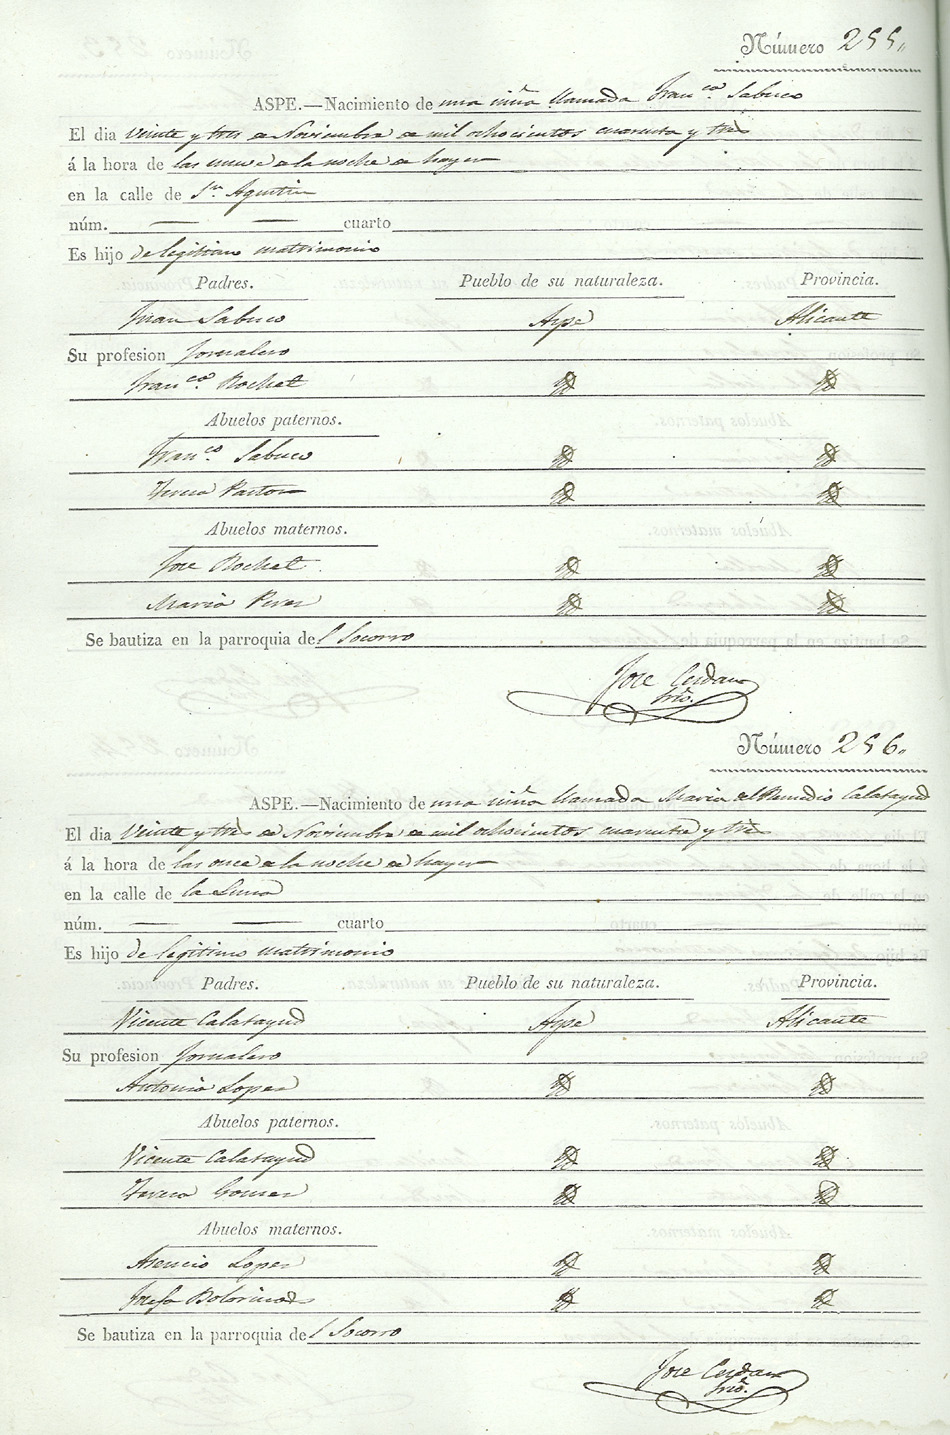 Número 255,,
ASPE.—Nacimiento de una niña llamada Franca. Sabuco
El dia veinte y tres de Noviembre de mil ochocientos cuarenta y tres
á la hora de las nueve de la noche de hayer
en la calle de Sn. Agustin
núm. — — cuarto
Es hijo de legitimo matrimonio
Padres. Pueblo de su naturaleza. Provincia.
Juan Sabuco Aspe Alicante
Su profesion Jornalero
Franca. Rochel
Abuelos paternos.
Franco. Sabuco
Teresa Pastor
Abuelos maternos.
Jose Rochel
Maria Perez
Se bautiza en la parroquia del Socorro
Jose Cerdan
Srio.
Número 256.
ASPE.—Nacimiento de una niña llamada Maria del Remedio Calatayud
El dia veinte y tres de Noviembre de mil ochocientos cuarenta y tres
á la hora de las once de la noche de hayer
en la calle de la Luna
núm. — — cuarto
Es hijo de legitimo matrimonio
Padres. Pueblo de su naturaleza. Provincia.
Vicente Calatayud Aspe Alicante
Su profesion Jornalero
Antonia Lopez
Abuelos paternos.
Vicente Calatayud
Teresa Gomez
Abuelos maternos.
Asencio Lopez
Josefa
Se bautiza en la parroquia del Socorro
Jose Cerdan
Srio.